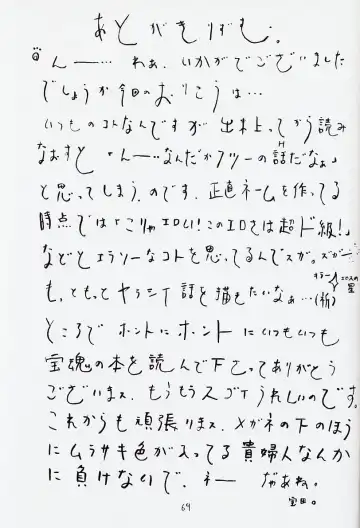 あとがきずむ。
んー… わぁ、いかがでございました
でしょうか今回のおりこうは…
いつものコトなんですが 出来上ってから読み
なおすと「んー…なんだかフツーのH話だなぁ」
と思ってしまう、のです。正直ネームを作ってる
時点では「こりゃエロい!このエロさは超ド級!」
などとエラソーなコトを思ってるんでスが。ズガーン
も、ともっとヤラシイ話を描きたいなぁ…(祈)
キラーン
エロスの星
ところで ホントにホントにいつもいつも
宝魂の本を読んで下さってありがとう
ございまス、もうもうスゴイうれしいのです。
これからも頑張りまス、メガネの下のほう
にムラサキ色が入ってる貴婦人なんか
に負けないで、ネー だぁね。
宝田。
69